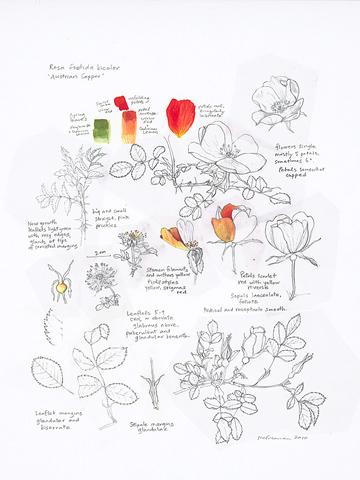 Rosa foetida bicolor
'Austrian Copper'
unfolding
petals
Spring
leaves
petal
reverse:
Cadmium
Lemon
petals red,
irregularly
flowers single,
mostly 5 petals,
sometimes 6.
Petals somewhat
cupped
New growth
leaflets light green
with rosy edges,
glands at tips
of serrated margins
big and small
straight, pink
prickles
2 cm
Stamen filaments
and anthers yellow
yellow, stigmas
red
Petals scarlet
red with yellow
reverse
Sepals lanceolate,
foliate
Pedicel and receptacle smooth.
Leaflets 5-9
ovate, or obovate
glabrous above,
puberulent and
glandular beneath.
Leaflet margins
glandular and
biserrate.
Stipule margins
glandular
2010